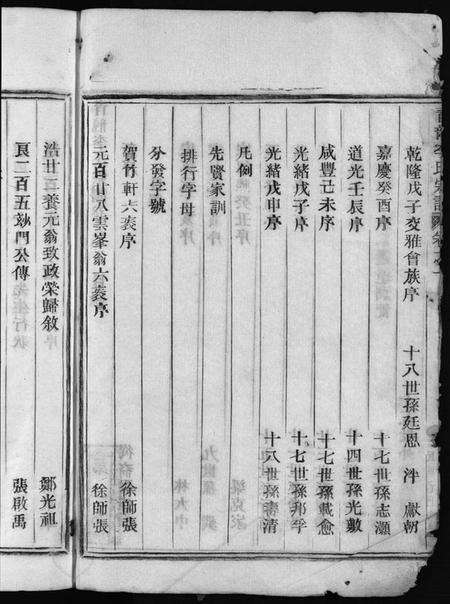 乾隆戊子麥雅會族序 十八世孫廷恩 泮 獻朝
嘉慶癸酉序 十七世孫志灝
道光壬辰序 十四世孫光數
咸豐己未序 十七世孫載愈
光緒戊子序 十七世孫邦孚
光緒戊申序 十八世孫壽清
凡例
先賢家訓
排行字母
分發字號
賀竹軒六袠序 徐師張
元百廿八雲峯翁六袠序 徐師張
浩廿三養元翁致政榮歸敘 鄒光祖
艮二百五妙門公傳 張啟禹